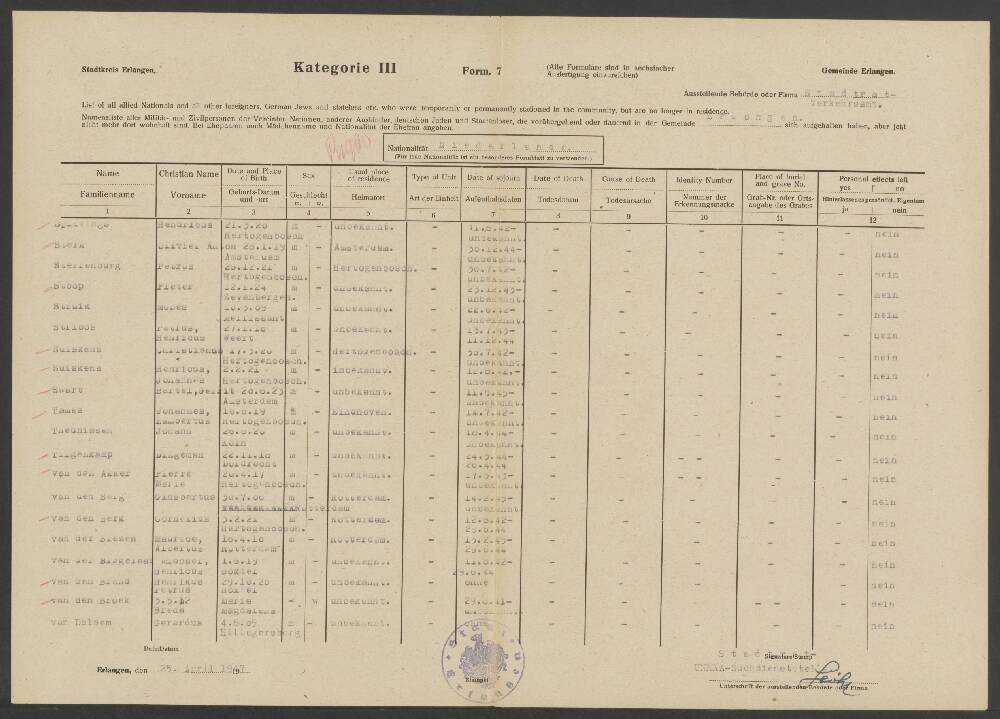 Stadtkreis Erlangen.
Kategorie III
Form. 7
(Alle Formulare sind in sechsfacher
Ausfertigung einzureichen)
Gemeinde Erlangen.
Ausstellende Behörde oder Firma Stadtrat-
Verkehrsamt.
List of all allied Nationals and all other foreigners, German Jews and stateless etc. who were temporarily or permanently stationed in the community, but are no longer in residence.
Namensliste aller Militär- und Zivilpersonen der Vereinten Nationen, anderer Ausländer, deutschen Juden und Staatenloser, die vorübergehend oder dauernd in der Gemeinde Erlangen. sich aufgehalten haben, aber jetzt
nicht mehr dort wohnhaft sind. Bei Ehepaaren auch Mädchenname und Nationalität der Ehefrau angeben.
Nationalität Niederlande.
(Für jede Nationalität ist ein besonderes Formblatt zu verwenden.)
Name Christian Name Date and Place of Birth Sex Usual place of residence Type of Unit Date of sojourn Date of Death Cause of Death Identity Number Place of burial and grave No. Personal effects left yes no
Familienname Vorname Geburts-Datum und -ort Geschlecht m. w. Heimatort Art der Einheit Aufenthaltsdaten Todesdatum Todesursache Nummer der Erkennungsmarke Grab-Nr. oder Ortsangabe des Grabes Hinterlassenes persönl. Eigentum ja nein
1 2 3 4 5 6 7 8 9 10 11 12
Hendricus 21.5.20 m - unbekannt. - 11.8.42- - - - - - nein
Hertogenbosch unbekannt.
Olivier Anton 28.1.19 m - Amsterdam. - 30.12.44- - - - - - nein
Amsterdam unbekannt.
Petrus m - Hertogenbosch. - 30.7.42- - - - - - nein
Hertogenbosch. unbekannt.
Stoop Pieter 12.1.24 m - unbekannt. - 23.12.43- - - - - - nein
Zevenbergen. unbekannt.
Struik m - unbekannt. - 22.6.42- - - - - - nein
unbekannt.
Petrus, 27.1.18 m - unbekannt. - 13.7.43- - - - - - nein
Henricus Weert 11.12.44
Huiskens Christianus 17.3.20 m - Hertogenbosch. - 30.7.42- - - - - - nein
Hertogenbosch. unbekannt.
Huiskens Henricus, 2.2.21 m - unbekannt. - 12.8.42.- - - - - - nein
Johannes Hertogenbosch. unbekannt.
Swart 20.6.23 m - unbekannt. - 11.5.43- - - - - - nein
Amsterdam unbekannt.
Tames Johannes, 16.8.19 m - Eindhoven. - 14.7.42- - - - - - nein
Lambertus Hertogenbosch. unbekannt.
Theunissen Johann 20.6.20 m - unbekannt. - 18.4.44- - - - - - nein
Köln unbekannt.
Tilgenkamp Dingeman 22.11.18 m - unbekannt. - 24.3.44- - - - - - nein
Dordrecht 26.4.44
van den Akker Pierre 20.4.17 m - unbekannt. - 27.5.43- - - - - - nein
Marie Hertogenbosch. unbekannt.
van den Berg Gijsbertus 30.7.00 m - Rotterdam. - 14.2.43- - - - - - nein
Rotterdam unbekannt.
van den Berk Cornelius 3.2.21 m - Rotterdam. - 12.8.42- - - - - - nein
Hertogenbosch. 23.6.44
van der Biesen Maurice, 16.4.18 m - Rotterdam. - 13.2.43- - - - - - nein
Albertus Rotterdam 29.6.44
1.8.19 m - unbekannt. - 11.8.42- - - - - - nein
Henricus Boxtel 29.6.44
van den Brand Henrikus 29.10.20 m - unbekannt. - ohne - - - - - nein
Petrus Boxtel
van den Broek 5.5.12 Maria - w unbekannt. - 29.8.41- - - - - - nein
Breda Magdalena unbekannt.
van Dalsem Gerardus 4.8.05 m - unbekannt. - ohne - - - - - nein
Hillegersberg
Date/Datum
Erlangen, den 25. April 1947
Stadtrat Erlangen
Stempel
Stadtrat
Signature/Stamp
UNRRA-Suchdienststelle
Unterschrift der ausstellenden Behörde oder Firma